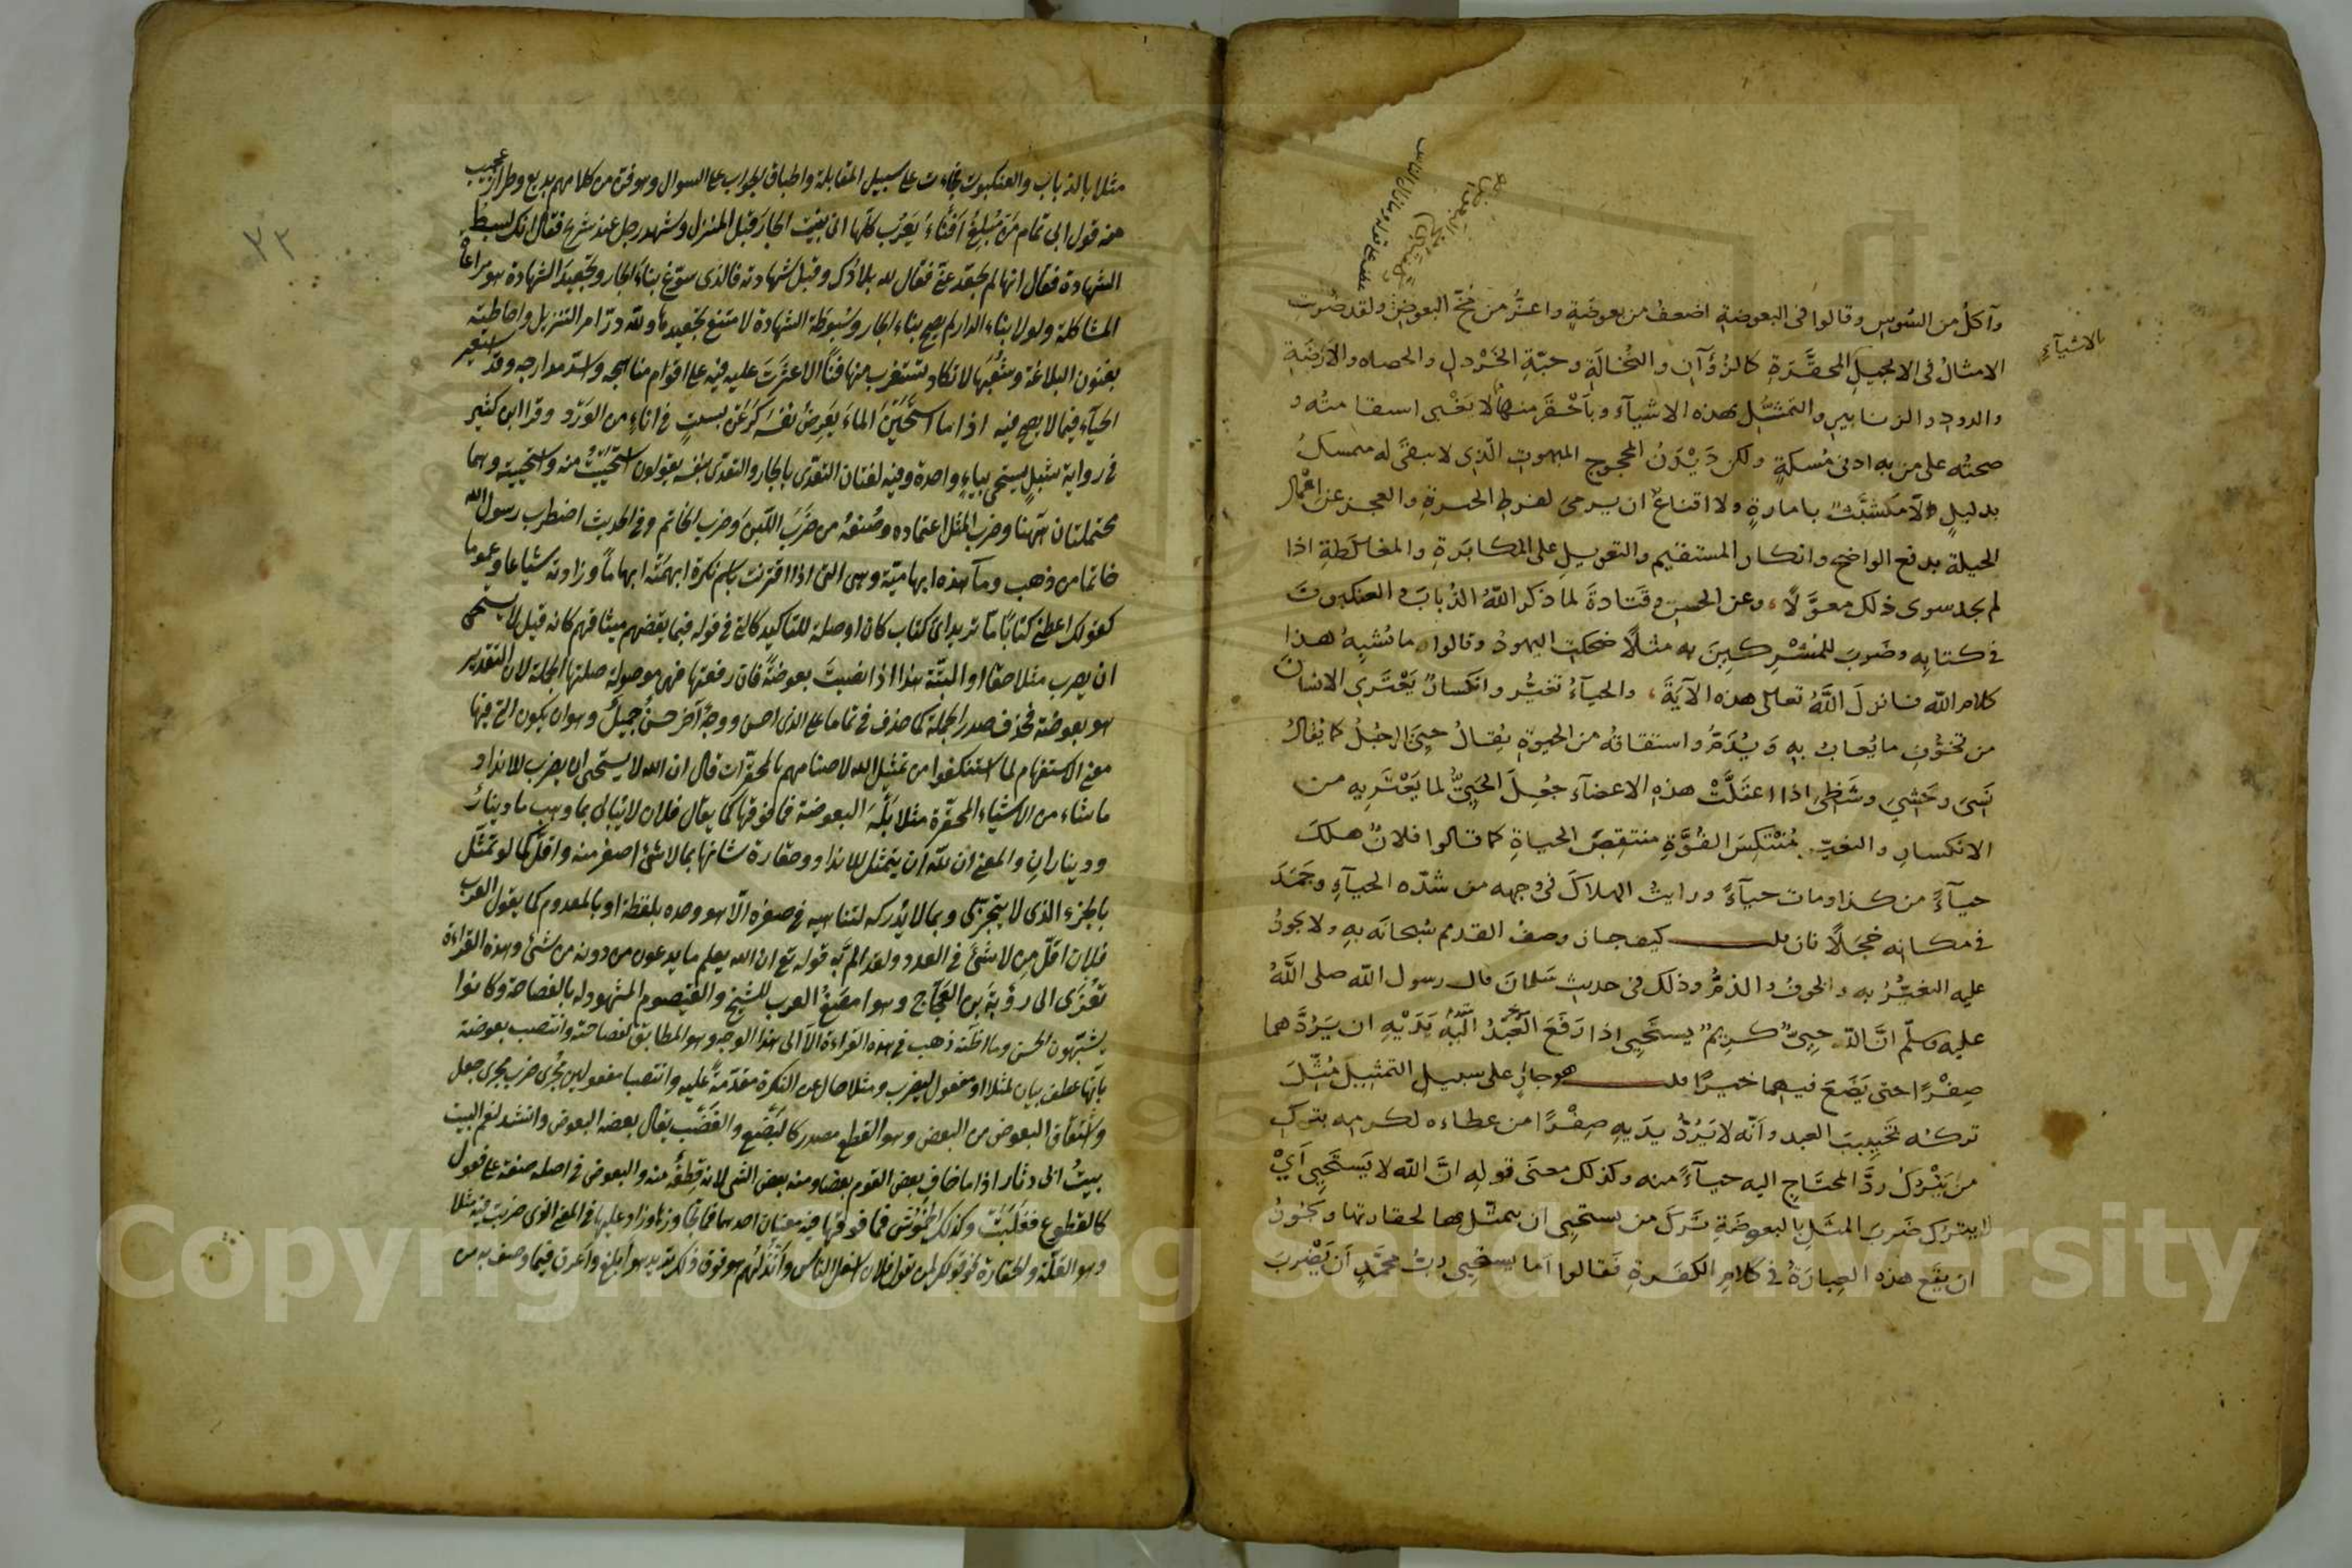 وآكل من السوس وقالوا في البعوضة اضعف من بعوضة واعز من مخ البعوض ولقد ضربت
بالاشيآء
الامثال في الانجيل المحقرة كالزؤان والنخالة وحبة الخردل والحصاه والارضة
والدود والزنابير والتمثل بهذه الاشيآء وباحقر منها لا يغبى استقامته و
صحته على من به ادنى مسكة ولكن ديدن المحجوج المبهوت الذي لا يبقى له متمسك
بدليل ولا متشبث بامارة ولا اقناع ان يرمي لفرط الحيرة والعجز عن اعمال
الحيلة بدفع الواضح وانكار المستقيم والتعويل على المكابرة والمغالطة اذا
لم يجد سوى ذلك معولا وعن الحسن وقتادة لما ذكر الله الذباب والعنكبوت
في كتابه وضرب للمشركين به مثلا ضحكت اليهود وقالوا ما نشبه هذا
كلام الله فانزل الله تعالى هذه الآية والحيآء تغير وانكسار يعتري الانسان
من تخوف ما يعاب به ويذم واشتقاقه من الحيوة يقال حيي الرجل كما يقال
نسي وحشي وشظي اذا اعتلت هذه الاعضآء جعل الحيي لما يعتريه من
الانكسار والتغير منتكس القوة منتقص الحياة كما قالوا فلان هلك
حيآءً من كذا ومات حيآءً ورايت الهلاك في وجهه من شدة الحيآء وجمد
في مكانه خجلا فان قلت كيف جاز وصف القديم سبحانه به ولا يجوز
عليه التغير به والخوف والذم وذلك في حديث سلمان قال رسول الله صلى الله
عليه وسلم ان الله حيي كريم يستحيي اذا رفع العبد اليه يديه ان يردهما
صفرا حتى يضع فيهما خيرا قلت هو جار على سبيل التمثيل مثل
تركه تخييب العبد وانه لا يرد يديه صفرا من عطاءه لكرمه بترك
من يترك رد المحتاج اليه حيآءً منه وكذلك معنى قوله ان الله لا يستحيي اي
لا يترك ضرب المثل بالبعوضة ترك من يستحيي ان يتمثل بها لحقارتها ويجوز
ان يقع هذه العبارة في كلام الكفرة فقالوا اما يستحيي رب محمد ان يضرب
٢٣
مثلا بالذباب والعنكبوت فجاءت على سبيل المقابلة واطباق الجواب على السوال وهو فن من كلامهم بديع وطراز عجيب
منه قول ابي تمام من مبلغ افناء يعرب كلها اني بنيت الجار قبل المنزل وشهد رجل عند شريح فقال انك لسبط
الشهادة فقال انها لم تجعد عني فقال لله بلادك وقبل شهادته فالذي سوغ بناء الجار وتجعيد الشهادة هو مراعاة
المشاكلة ولولا بناء الدار لم يصح بناء الجار وسبوطة الشهادة لامتنع تجعيدها ولله در امر التنزيل واحاطته
بفنون البلاغة وشعبها لا تكاد تستغرب منها فنا الا عثرت عليه فيه على اقوام مناهجه واسد مدارجه وقد استعير
الحيآء فيما لا يصح فيه اذا ما استحين الماء يعرض نفسه كرعن بسبت في اناء من الورد وقرا ابن كثير
في رواية شبل يستحي بياء واحدة وفيه لغتان التعدي بالجار والتعدي بنفسه يقولون استحييت منه واستحييته وهما
محتملتان ههنا وضرب المثل اعتماده وصنعه من ضرب اللبن وضرب الخاتم وفي الحديث اضطرب رسول الله
خاتما من ذهب وما هذه ابهامية وهي التي اذا اقترنت باسم نكرة ابهمته ابهاما وزادته شياعا وعموما
كقولك اعطني كتابا ما تريد اي كتاب كان او صلة للتاكيد كالتي في قوله فبما نقضهم ميثاقهم كانه قيل لا يستحي
ان يضرب مثلا حقا او البتة هذا اذا نصبت بعوضة فان رفعتها فهي موصولة صلتها الجملة لان التقدير
هو بعوضة فحذف صدر الجملة كما حذف في تماما على الذي احسن ووجه آخر حسن جميل وهو ان يكون التي فيها
معنى الاستفهام لما استنكفوا من تمثيل الله لاصنامهم بالمحقرات قال ان الله لا يستحي ان يضرب للانداد
ما شاء من الاشياء المحقرة مثلا بله البعوضة فما فوقها كما يقال فلان لا يبالي بما وهب ما دينار
وديناران والمعنى ان لله ان يتمثل للانداد وحقارة شانها بما لا شئ اصغر منه واقل كما لو تمثل
بالجزء الذي لا يتجزى وبما لا يدركه لتناهيه في صغره الا هو وحده بلفظه او بالمعدوم كما يقول العرب
فلان اقل من لا شئ في العدد ولقد الم به قوله تع ان الله يعلم ما يدعون من دونه من شئ وهذه القراءة
تعزى الى رؤبة بن العجاج وهو امضغ العرب للشيح والقيصوم المشهود له بالفصاحة وكانوا
يشبهون الحسن وما اظنه ذهب في هذه القراءة الا الى هذا الوجه وهو المطابق لفصاحته وانتصب بعوضة
بانها عطف بيان لمثلا او مفعول ليضرب ومثلا حال عن النكرة مقدمة عليه وانتصبا مفعولين مجرى ضرب مجرى جعل
واشتقاق البعوض من البعض وهو القطع مصدر كالبضع والعضب يقال بعضه البعوض وانشد لنعم البيت
بيت ابى دثار اذا ما خاف بعض القوم بعضا ومنه بعض الشئ لانه قطعة منه والبعوض في اصله صفة على فعول
كالقطوع فغلبت وكذلك الخموش فما فوقها فيه معنيان احدهما فما تجاوزها وزاد عليها في المعنى الذي ضربت فيه مثلا
وهو القلة والحقارة نحو قولك لمن يقول فلان اسفل الناس وانذلهم هو فوق ذلك تريد هو ابلغ واعرق فيما وصف به من